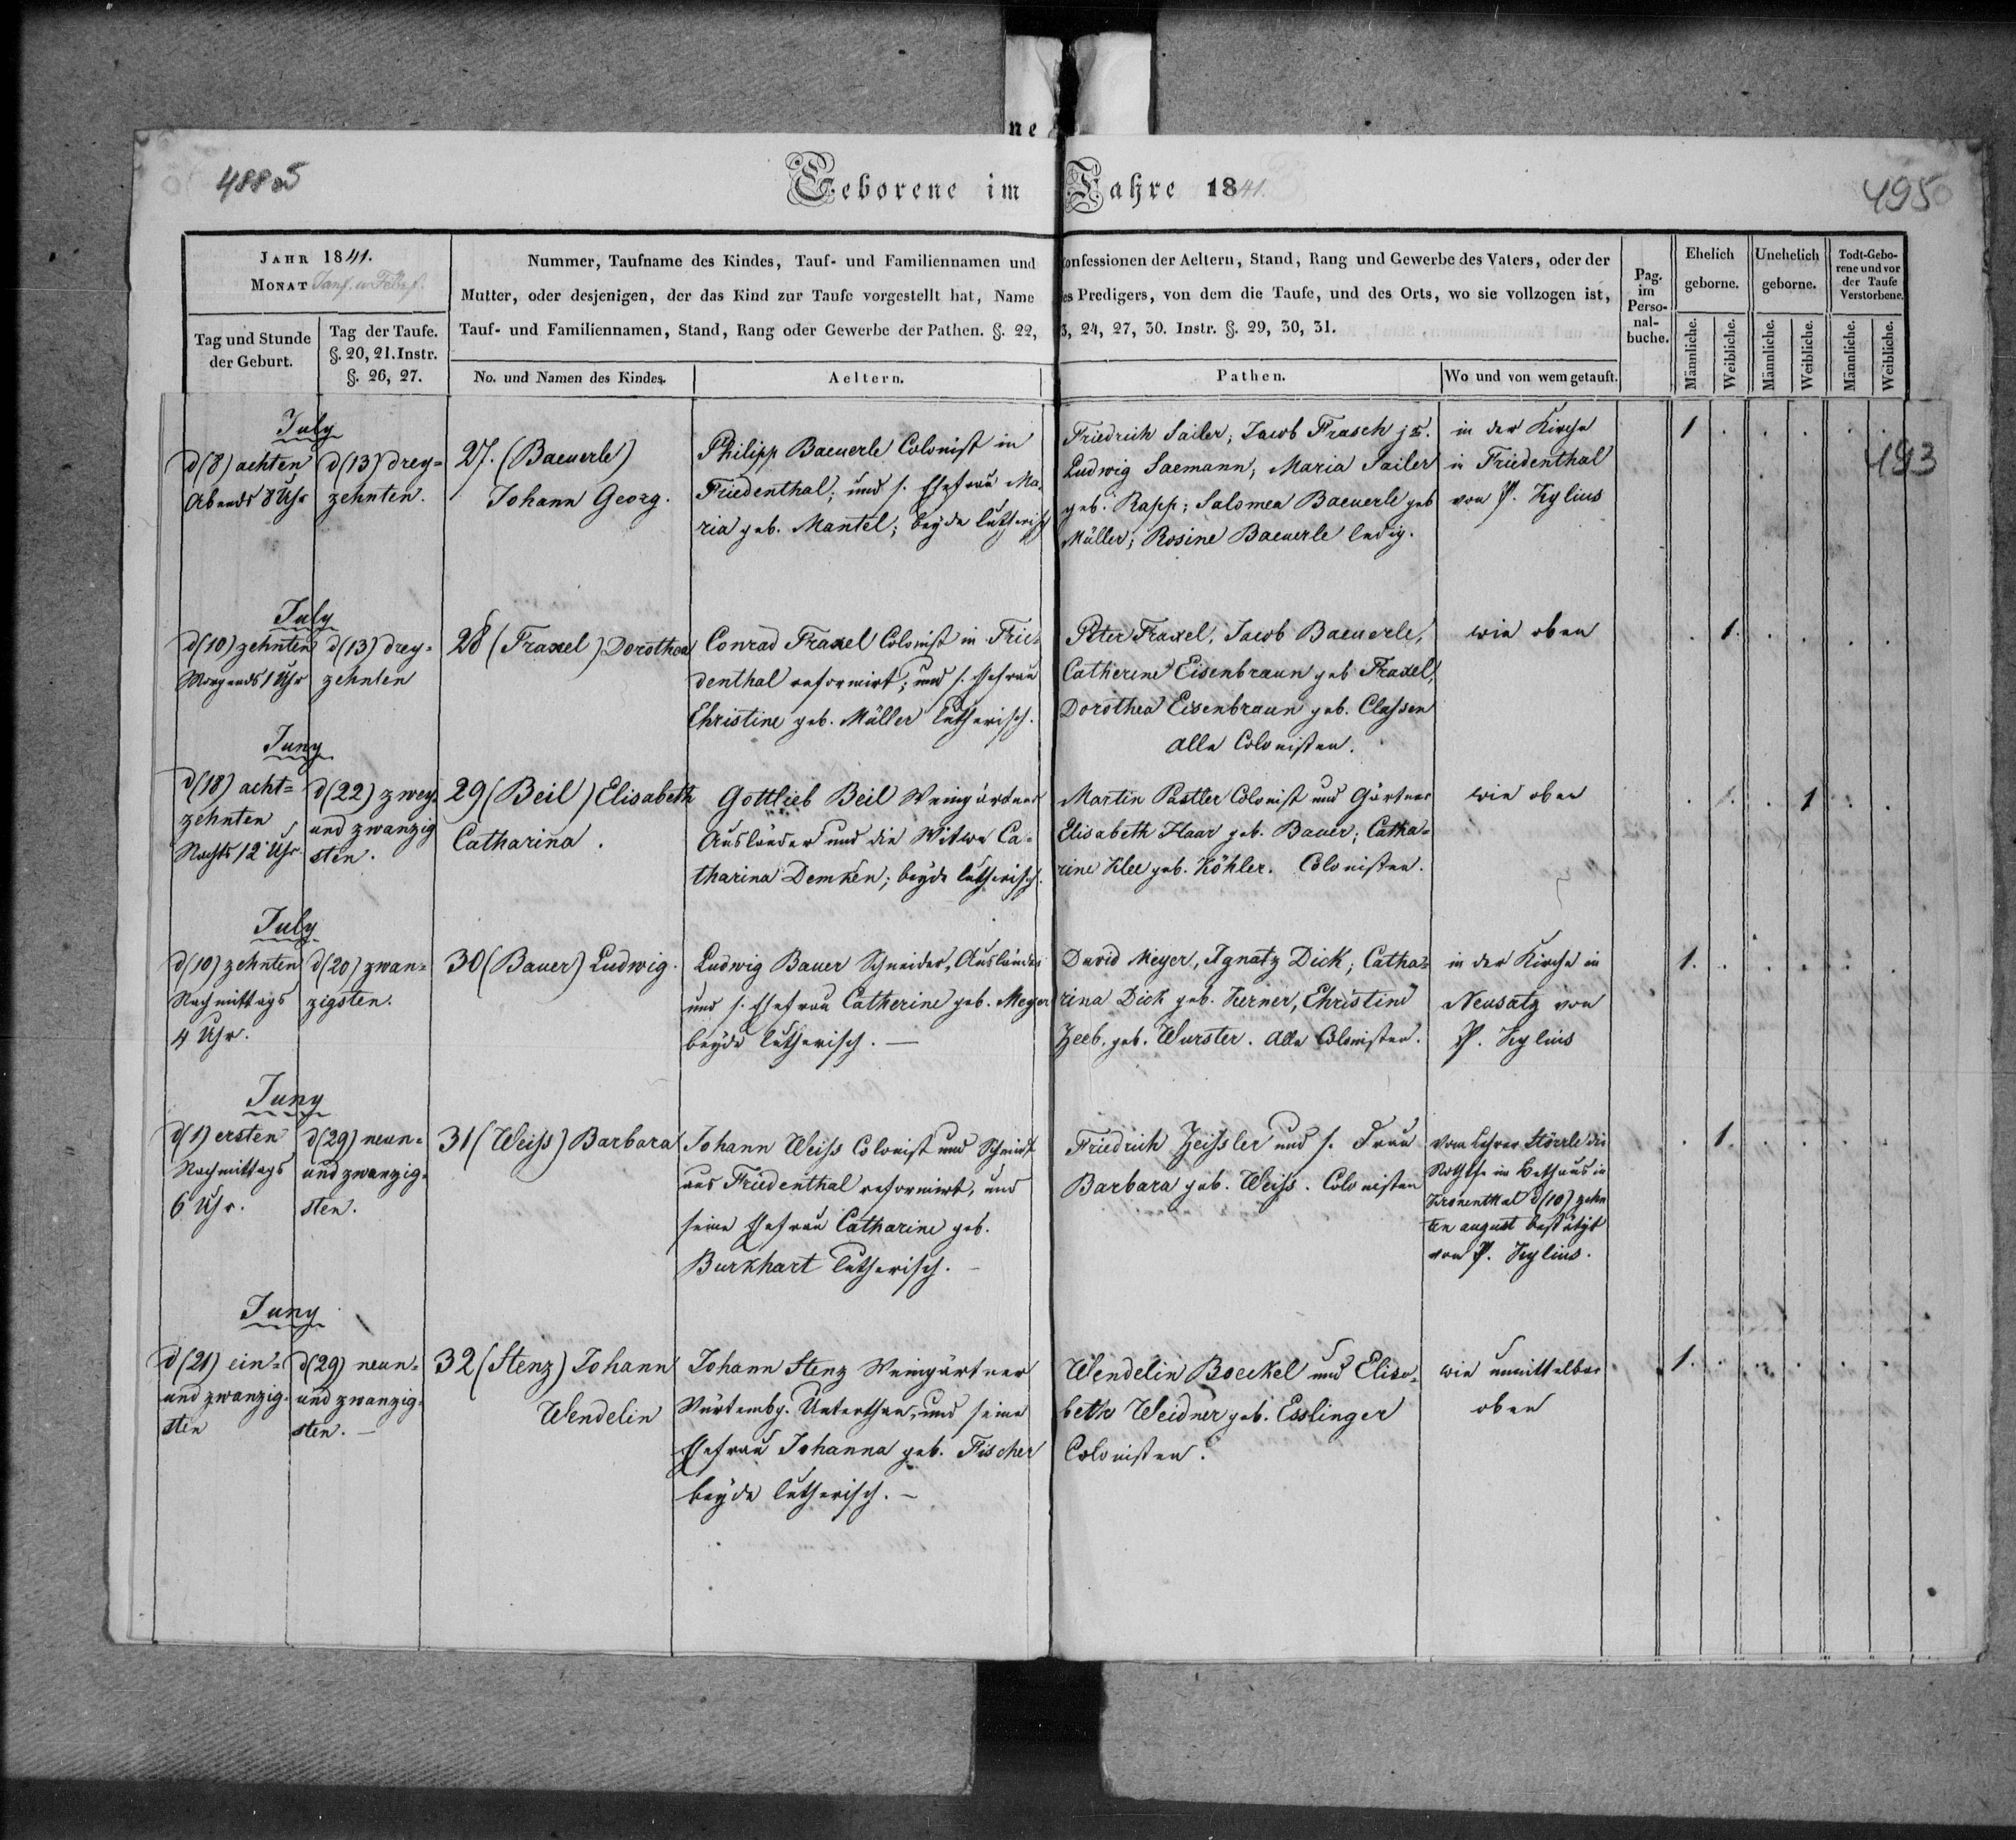 ne
488 os
Geborene im Jahre 1841.
495
JAHR 1841.
MONAT
Tag und Stunde
der Geburt.
Tag der Taufe.
§. 20, 21. Instr.
§. 26, 27.
Nummer, Taufname des Kindes, Tauf- und Familiennamen und
Mutter, oder desjenigen, der das Kind zur Taufe vorgestellt hat, Name
Tauf- und Familiennamen, Stand, Rang oder Gewerbe der Pathen. §. 22,
No. und Namen des Kindes.
Aeltern.
Confessionen der Aeltern, Stand, Rang und Gewerbe des Vaters, oder der
des Predigers, von dem die Taufe, und des Orts, wo sie vollzogen ist,
3, 24, 27, 30. Instr. §. 29, 30, 31.
Pathen.
Wo und von wem getauft.
Pag.
im
Perso-
nal-
buche.
Ehelich
geborne.
Unehelich
geborne.
Todt-Gebo-
rene und vor
der Taufe
Verstorbene.
Männliche.
Weibliche.
Männliche.
Weibliche.
Männliche.
Weibliche.
193
July
d (8) achten
Abends 8 Uhr
d (13) drey=
zehnten.
27. (Baeuerle)
Johann Georg.
Philipp Baeuerle Colonist in
Friedenthal; und s. Ehefrau Ma-
ria geb. Mantel; beyde lutherisch
Friedrich Sailer; Jacob Frasch jr.
Ludwig Saemann; Maria Sailer
geb. Rapp; Salomea Baeuerle geb
Müller; Rosine Baeuerle ledig.
in der Kirche
in Friedenthal
von P. Kylius
1
July
d (10) zehnten
Morgends 1 Uhr
d (13) drey=
zehnten
28 (Fraxel) Dorothea
Conrad Fraxel Colonist in Frie-
denthal reformirt; und s. Ehefrau
Christine geb. Müller lutherisch.
Peter Fraxel, Jacob Baeuerle,
Catherine Eisenbraun geb Fraxel,
Dorothea Eisenbraun geb. Classen
alle Colonisten.
wie oben
1.
Juny
d (18) acht=
zehnten
Nachts 12 Uhr
d (22) zwey
und zwanzig
sten.
29 (Beil) Elisabeth
Catharina.
Gottlieb Beil Weingärtner
Ausländer und die Witwe Ca-
tharina Demken; beyde lutherisch.
Martin Pastler Colonist und Gärtner
Elisabeth Haar geb. Bauer; Catha-
rine Klee geb. Köhler. Colonisten.
wie oben
1
July
d (10) zehnten
Nachmittags
4 Uhr.
d (20) zwan=
zigsten.
30 (Bauer) Ludwig.
Ludwig Bauer Schneider, Ausländer
und s. Ehefrau Catherine geb. Meyer
beyde lutherisch. —
David Meyer, Ignatz Dick; Catha-
rina Dick geb. Kerner, Christine
Zeeb. geb. Wurster. Alle Colonisten.
in der Kirche in
Neusatz von
P. Kylius
1.
Juny
d (1) ersten
Nachmittags
6 Uhr.
d (29) neun=
und zwanzig-
sten.
31 (Weiss) Barbara
Johann Weiss Colonist und Schmidt
aus Friedenthal reformirt, und
seine Ehefrau Catharine geb.
Burkhart lutherisch. —
Friedrich Zeissler und s. Frau
Barbara geb. Weiss. Colonisten
vom Lehrer Störrle die
Nothtfe im Bethaus in
Kronenthal d (10) zehn
ten august bestätigt
von P. Kylius.
1.
Juny
d (21) ein=
und zwanzig-
sten
d (29) neun=
und zwanzig-
sten. —
32 (Stenz) Johann
Wendelin
Johann Stenz Weingärtner
Würtembg. Unterthan, und seine
Ehefrau Johanna geb. Fischer
beyde lutherisch. —
Wendelin Boeckel und Elisa-
beth Weidner geb. Esslinger
Colonisten.
wie unmittelbar
oben
1.